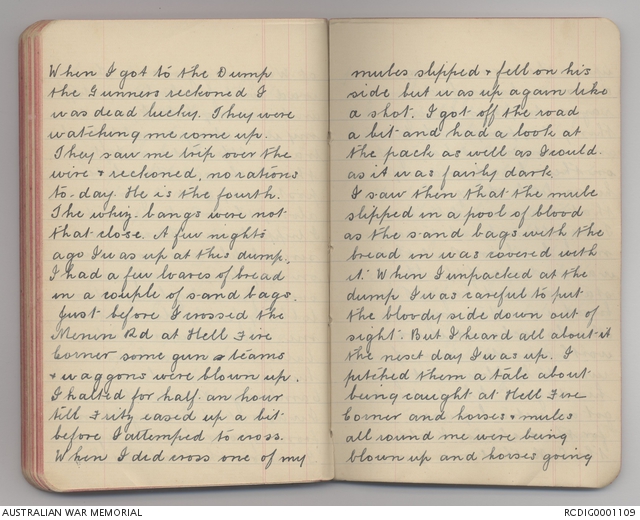 When I got to the Dump
the Gunners reckoned I
was dead lucky. They were
watching me come up.
They saw me trip over the
wire & reckoned, no rations
to-day. He is the fourth.
The whiz-bangs were not
that close. A few nights
ago I was up at this dump.
I had a few loaves of bread
in a couple of sand bags.
Just before I crossed the
Menin Rd at Hell Fire
Corner some gun teams
& waggons were blown up.
I halted for half-an hour
till Fritz eased up a bit
before I attempted to cross.
When I did cross one of my
mules slipped & fell on his
side but was up again like
a shot. I got off the road
a bit and had a look at
the pack as well as I could.
as it was fairly dark.
I saw then that the mule
slipped in a pool of blood
as the sand bags with the
bread in was covered with
it. When I unpacked at the
dump I was careful to put
the bloody side down out of
sight. But I heard all about it
the next day I was up. I
pitched them a tale about
being caught at Hell Fire
Corner and horses & mules
all round me were being
blown up and horses going
AUSTRALIAN WAR MEMORIAL
RCDIG0001109